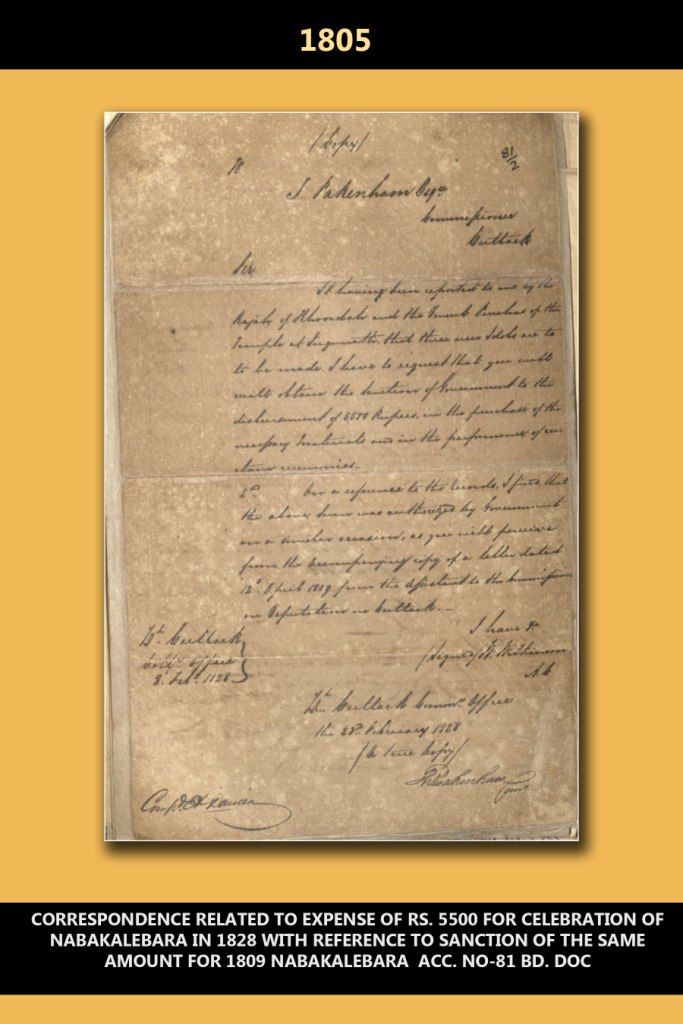 1805
(Copy)
81/2
To
T. Pakenham Esqr
Commissioner
Cuttack
Sir,
It having been reported to me by the
Rajah of Khoordah and the Purchas of the
Temple at Juggunath, that three new Idols are to
to be made. I have to request that you will
will obtain the sanction of Government to the
disbursement of 5500 Rupees, in the purchase of the
necessary materials and in the performance of cer
tain ceremonies.
2nd On a reference to the records, I find, that
the above sum was authorized by Government
on a similar occasion, as you will perceive
from the accompanying copy of a letter dated
12th April 1809 from the Assistant to the Commissioner
on Deputation in Cuttack.
I have &
Zh. Cuttack
Collrs Office
8 Feby. 1828
(Signed) W. Wilkinson
Zh. Cuttack Commrs Office
the 28th February 1828
(A true Copy)
T Pakenham
Comr
CORRESPONDENCE RELATED TO EXPENSE OF RS. 5500 FOR CELEBRATION OF
NABAKALEBARA IN 1828 WITH REFERENCE TO SANCTION OF THE SAME
AMOUNT FOR 1809 NABAKALEBARA ACC. NO-81 BD. DOC